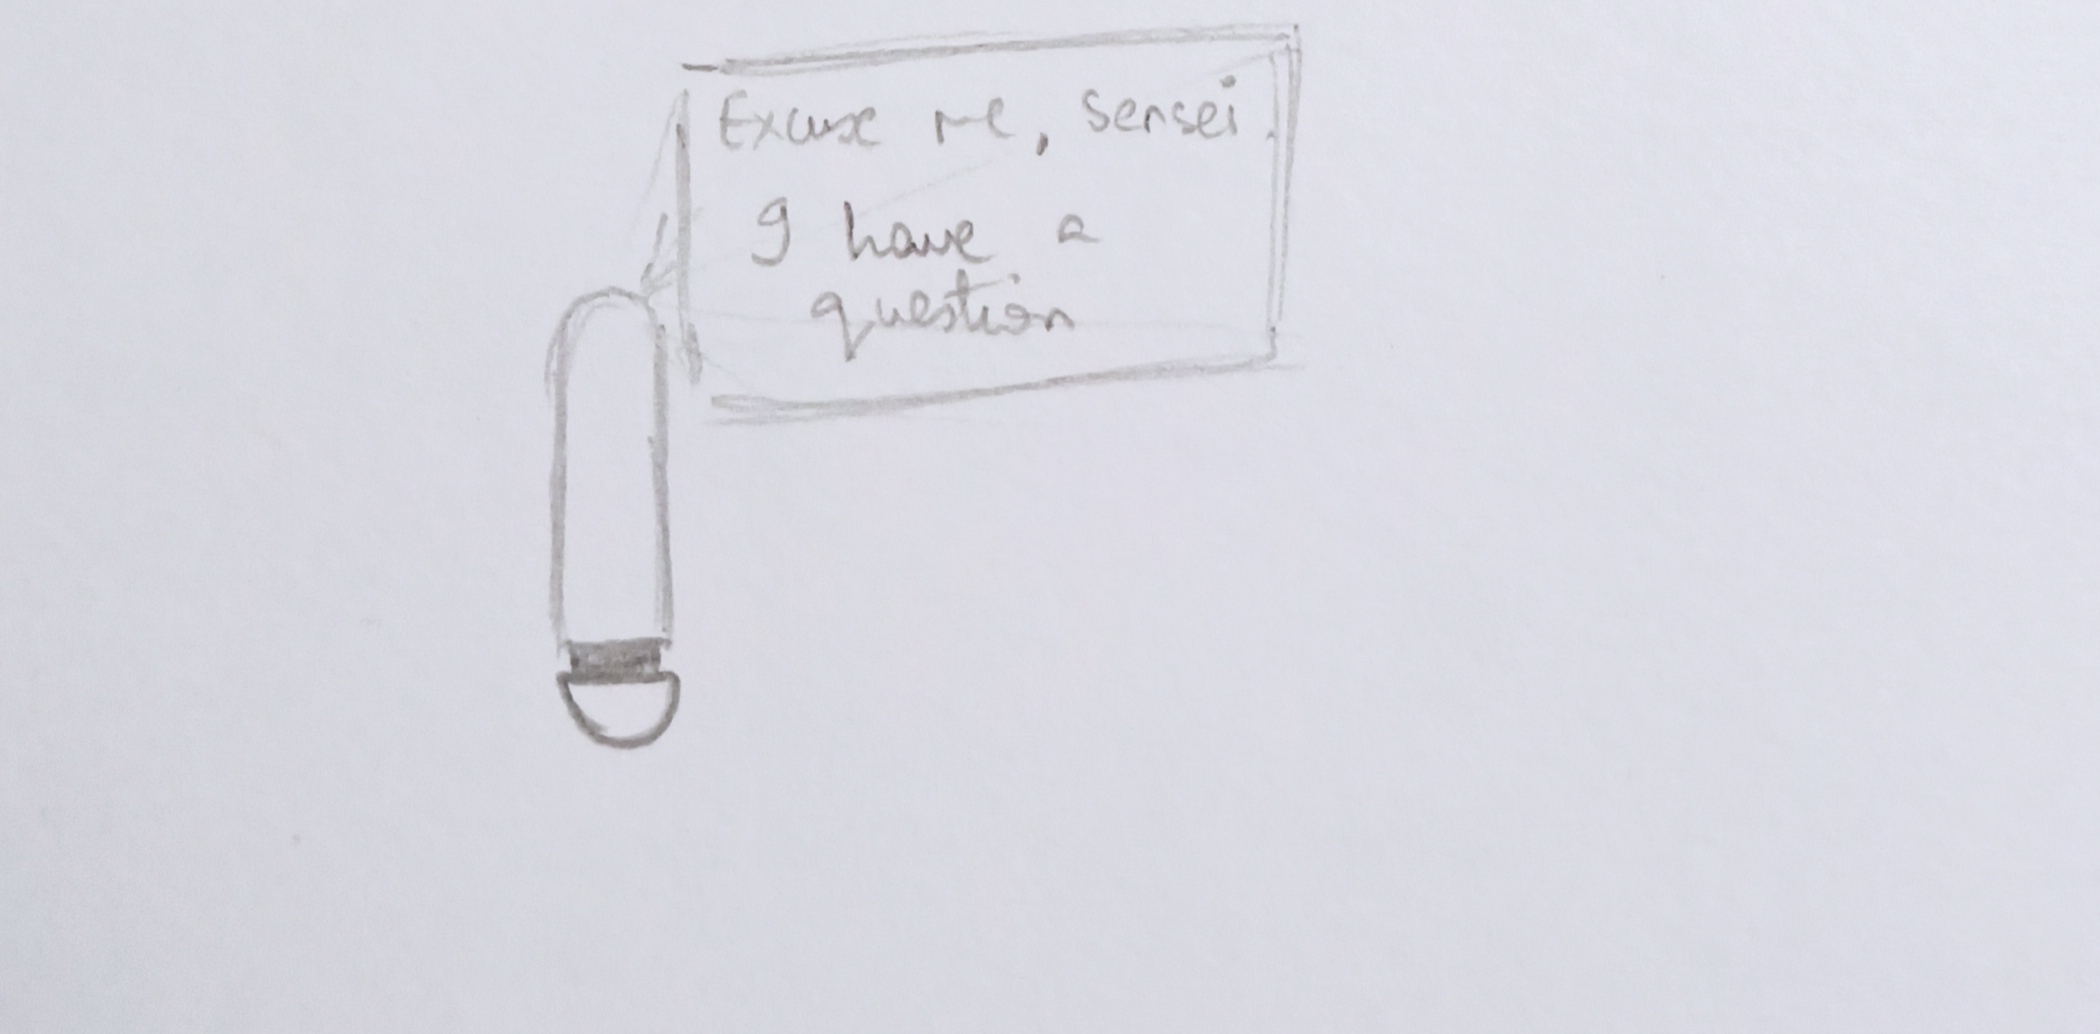 Excuse me, sensei.
I have a
question